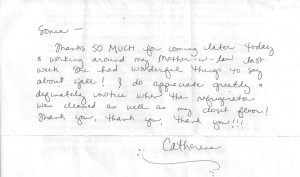 Sonia —
Thanks SO MUCH for coming later today
& working around my Mother-in-law last
week. She had wonderful things to say
about y'all! I do appreciate greatly &
definately notice when the refrigerator
was cleaned as well as my closet floor!
Thank you, thank you, thank you!!!
Catherine